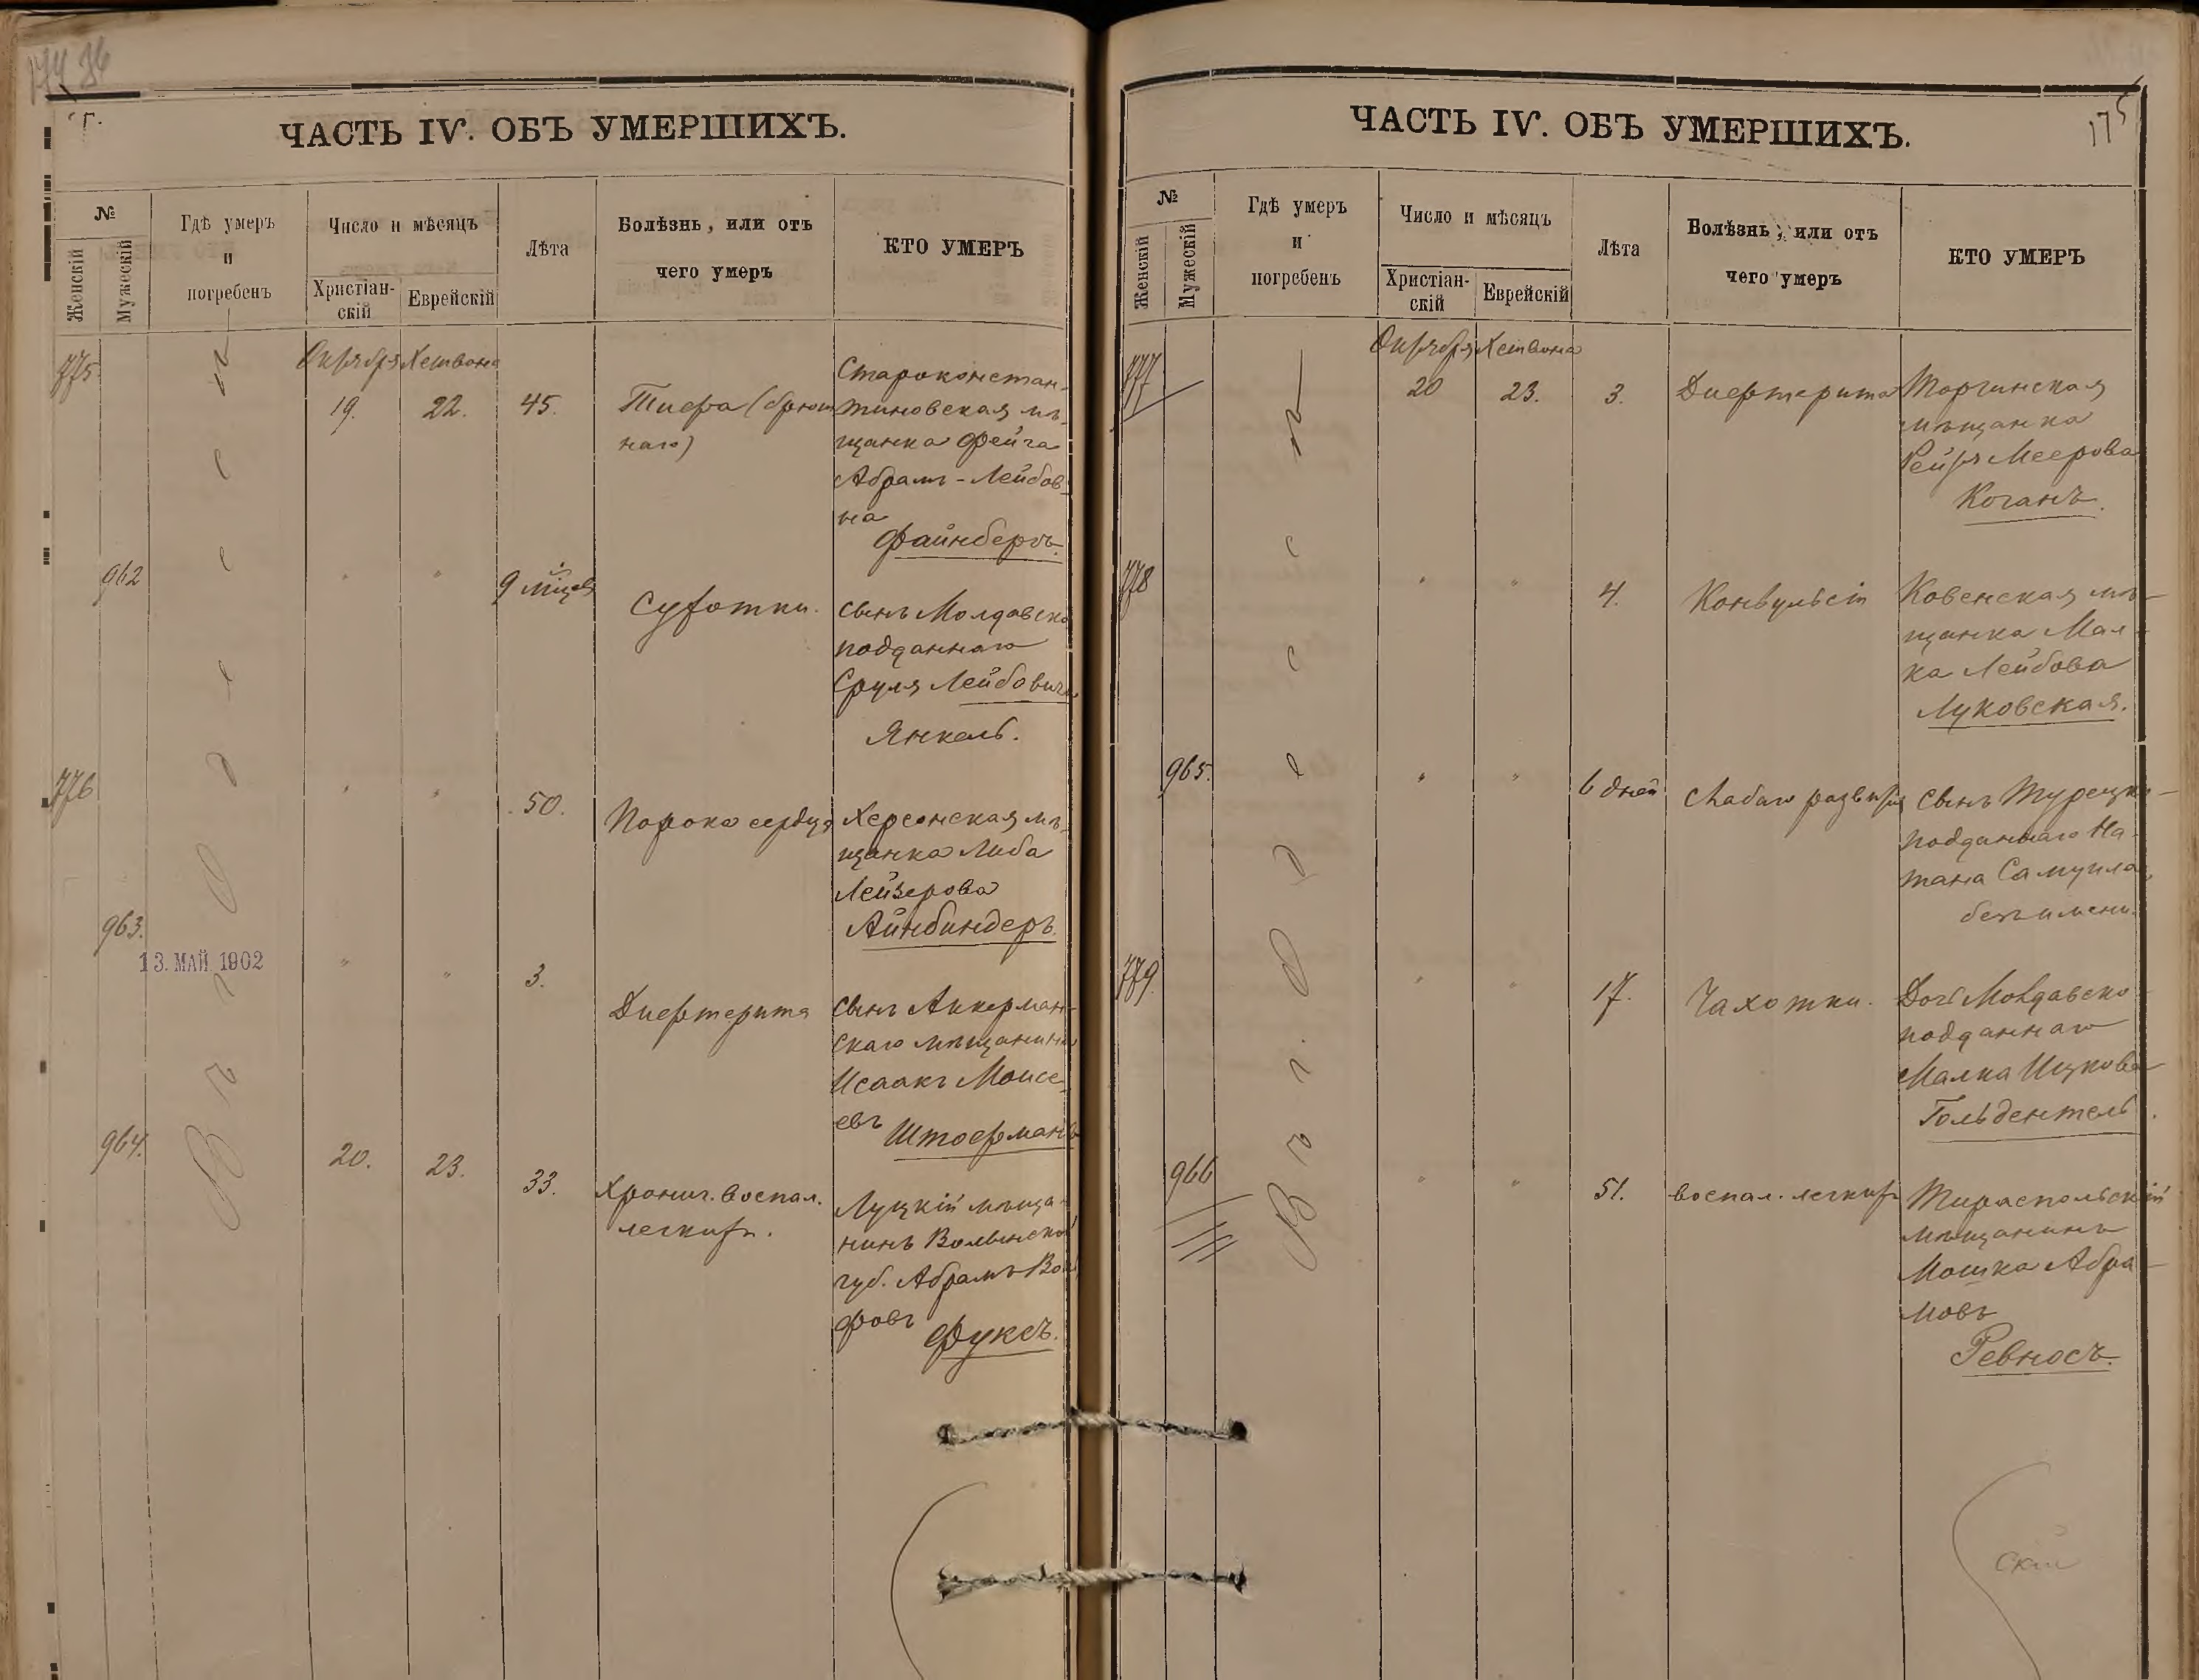 ЧАСТЬ IV. ОБЪ УМЕРШИХЪ.
№
Женскій
Мужескій
Гдѣ умеръ
и
погребенъ
Число и мѣсяцъ
Христіан-
скій
Еврейскій
Лѣта
Болѣзнь, или отъ
чего умеръ
КТО УМЕРЪ
Октября Хешвона
775
19.
22.
45.
Тифа (брюш
наго)
Староконстан-
тиновская мѣ-
щанка Фейга
Абрамъ-Лейбов-
на
Файнбергъ.
962
" "
9 мѣсцев
Сухотки.
сынъ Молдавско
подданнаго
Сруля Лейбовича
Янкель.
776
" "
50.
Порока сердца
Херсонская мѣ-
щанка Либа
Лейзерова
Айнбиндеръ.
963.
13. МАЙ 1902
" "
3.
Дифтерита
сынъ Аккерман-
скаго мѣщанина
Исаакъ Моисе-
евъ
Штоферманъ
964.
20.
23.
33.
Хронич. воспал.
легкихъ.
Луцкій мѣща-
нинъ Волынской
губ. Абрамъ Воль
фовъ
Фуксъ.
Въ г. Одессѣ
ЧАСТЬ IV. ОБЪ УМЕРШИХЪ.
175
№
Женскій
Мужескій
Гдѣ умеръ
и
погребенъ
Число и мѣсяцъ
Христіан-
скій
Еврейскій
Лѣта
Болѣзнь, или отъ
чего умеръ
КТО УМЕРЪ
Октября Хешвона
777
20
23.
3.
Дифтерита
Торчинская
мѣщанка
Рейзя Меерова
Коганъ.
778
" "
4.
Конвульсій
Ковенская мѣ-
щанка Мал-
ка Лейбова
Луковская.
965.
" "
6 дней
слабаго развитія
сынъ Турецко-
подданнаго На-
тана Самуила
безъ имени.
779.
" "
17.
Чахотки.
Дочь Молдавско-
подданнаго
Малка Ицкова
Гольдентель.
966
" "
51.
воспал. легкихъ
Тираспольскій
мѣщанинъ
Мошка Абра-
мовъ
Ревносъ.
Въ г. Одессѣ
скій